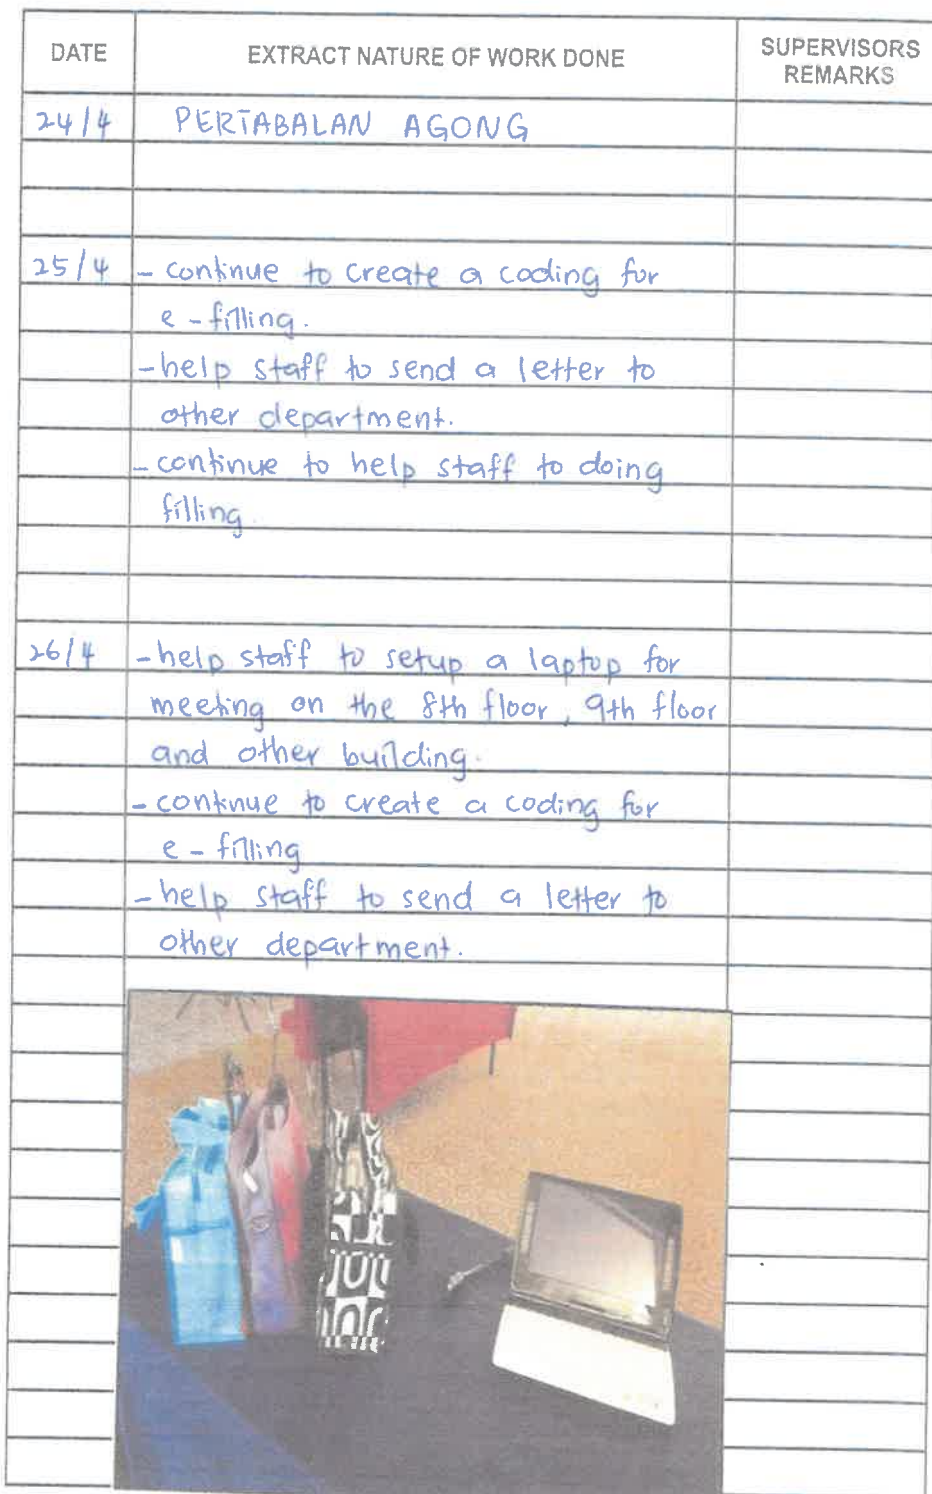 DATE EXTRACT NATURE OF WORK DONE SUPERVISORS REMARKS
24/4 PERTABALAN AGONG
25/4 - continue to create a coding for
e - filling.
- help staff to send a letter to
other department.
- continue to help staff to doing
filling.
26/4 - help staff to setup a laptop for
meeting on the 8th floor, 9th floor
and other building.
- continue to create a coding for
e - filling
- help staff to send a letter to
other department.